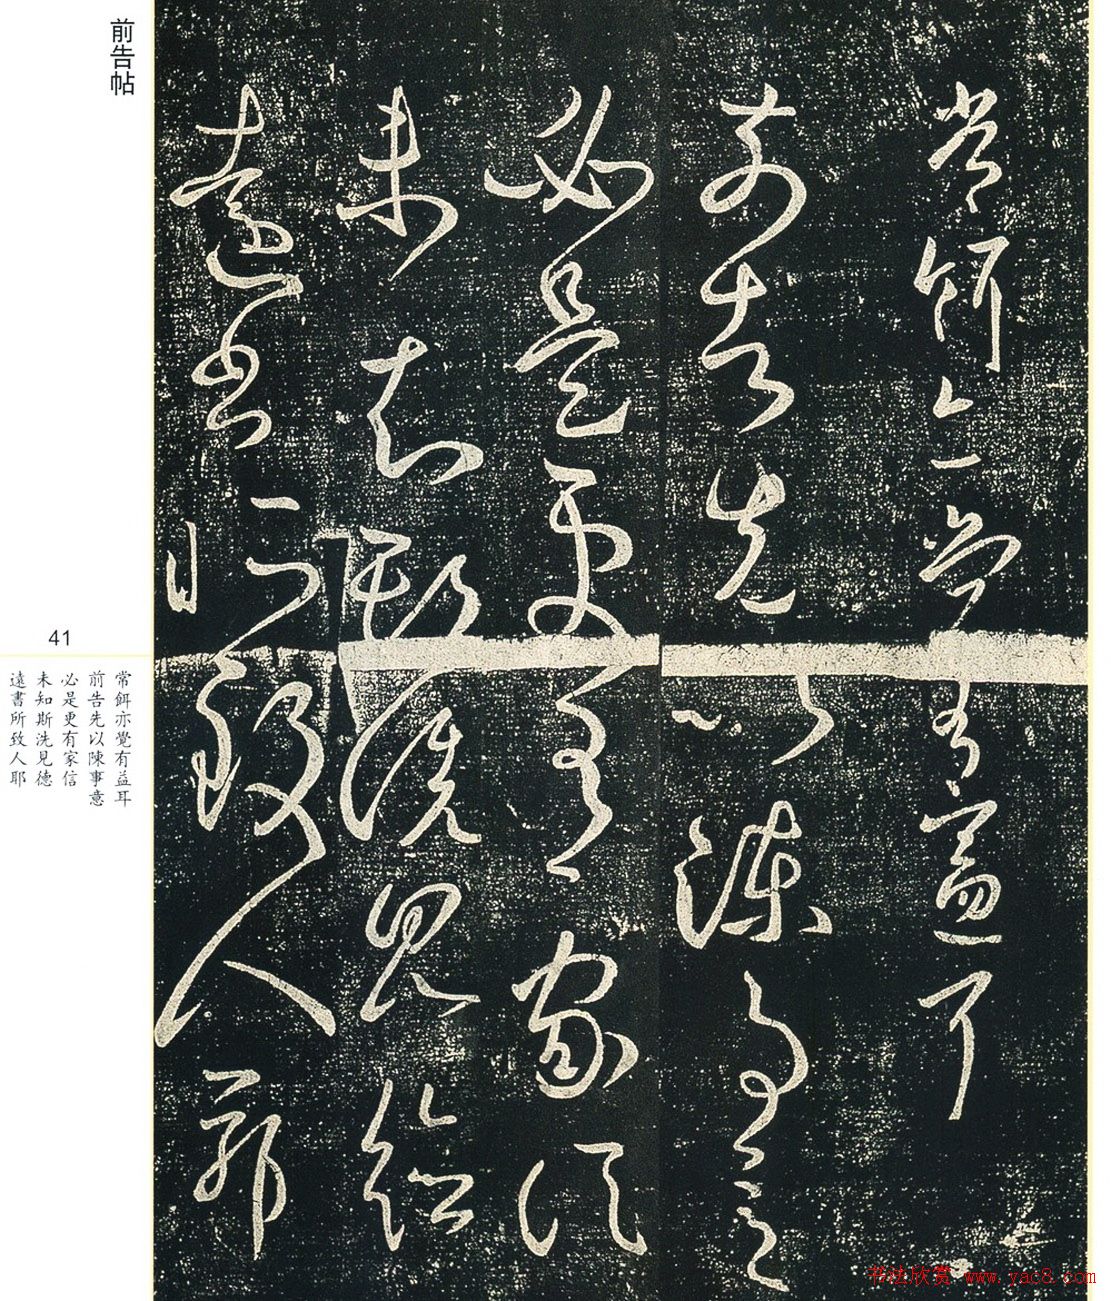 常餌亦覺有益耳
前告先以陳事意
必是更有家信
未知斯洗見
遠書所致人耶
前告帖
41
常餌亦覺有益耳
前告先以陳事意
必是更有家信
未知斯洗見德
遠書所致人耶
书法欣赏 www.yac8.com